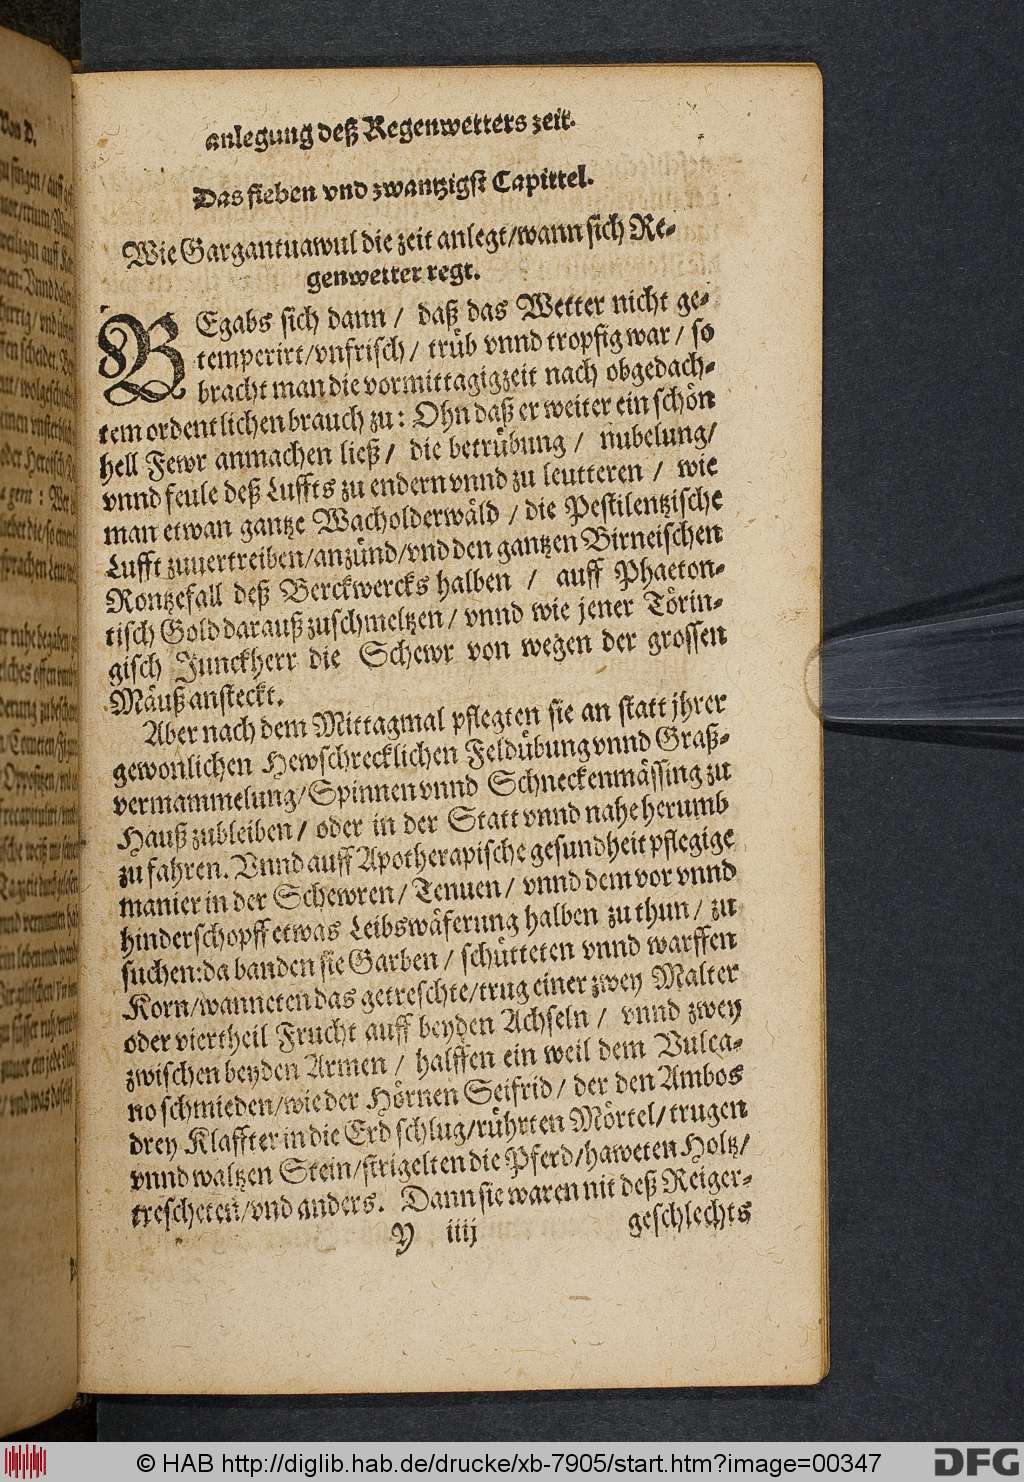 anlegung deß Regenwetters zeit.
Das sieben vnd zwantzigst Capittel.
Wie Gargantuawul die zeit anlegt/wann sich Re-
genwetter regt.
BEgabs sich dann / daß das Wetter nicht ge-
temperirt/vnfrisch / trüb vnnd tropfig war / so
bracht man die vormittagigzeit nach obgedach-
tem ordentlichen brauch zu: Ohn daß er weiter ein schön
hell Fewr anmachen ließ / die betrübung / nubelung/
vnnd feule deß Luffts zu endern vnnd zu leutteren / wie
man etwan gantze Wacholderwäld / die Pestilentzische
Lufft zuuertreiben/anzünd/vnd den gantzen Birneischen
Rontzefall deß Berckwercks halben / auff Phaeton-
tisch Gold darauß zuschmeltzen / vnnd wie jener Törin-
gisch Junckherr die Schewr von wegen der grossen
Mäuß ansteckt.
Aber nach dem Mittagmal pflegten sie an statt jhrer
gewonlichen Hewschrecklichen Feldübung vnnd Graß-
vermammelung/Spinnen vnnd Schneckenmässing zu
Hauß zubleiben / oder in der Statt vnnd nahe herumb
zu fahren. Vnnd auff Apotherapische gesundheit pflegige
manier in der Schewren / Tennen / vnnd dem vor vnnd
hinderschopff etwas Leibswäferung halben zu thun / zu
suchen: da banden sie Garben / schütteten vnnd warffen
Korn/wanneten das getreschte/trug einer zwey Malter
oder viertheil Frucht auff beyden Achseln / vnnd zwey
zwischen beyden Armen / halffen ein weil dem Vulca-
no schmieden/wie der Hörnen Seifrid / der den Ambos
drey Klaffter in die Erd schlug/rührten Mörtel/trugen
vnnd waltzen Stein/strigelten die Pferd/haweten Holtz/
trescheten/vnd anders. Dann sie waren nit deß Reiger-
Y iiij geschlechts
Von D.
© HAB http://diglib.hab.de/drucke/xb-7905/start.htm?image=00347
DFG